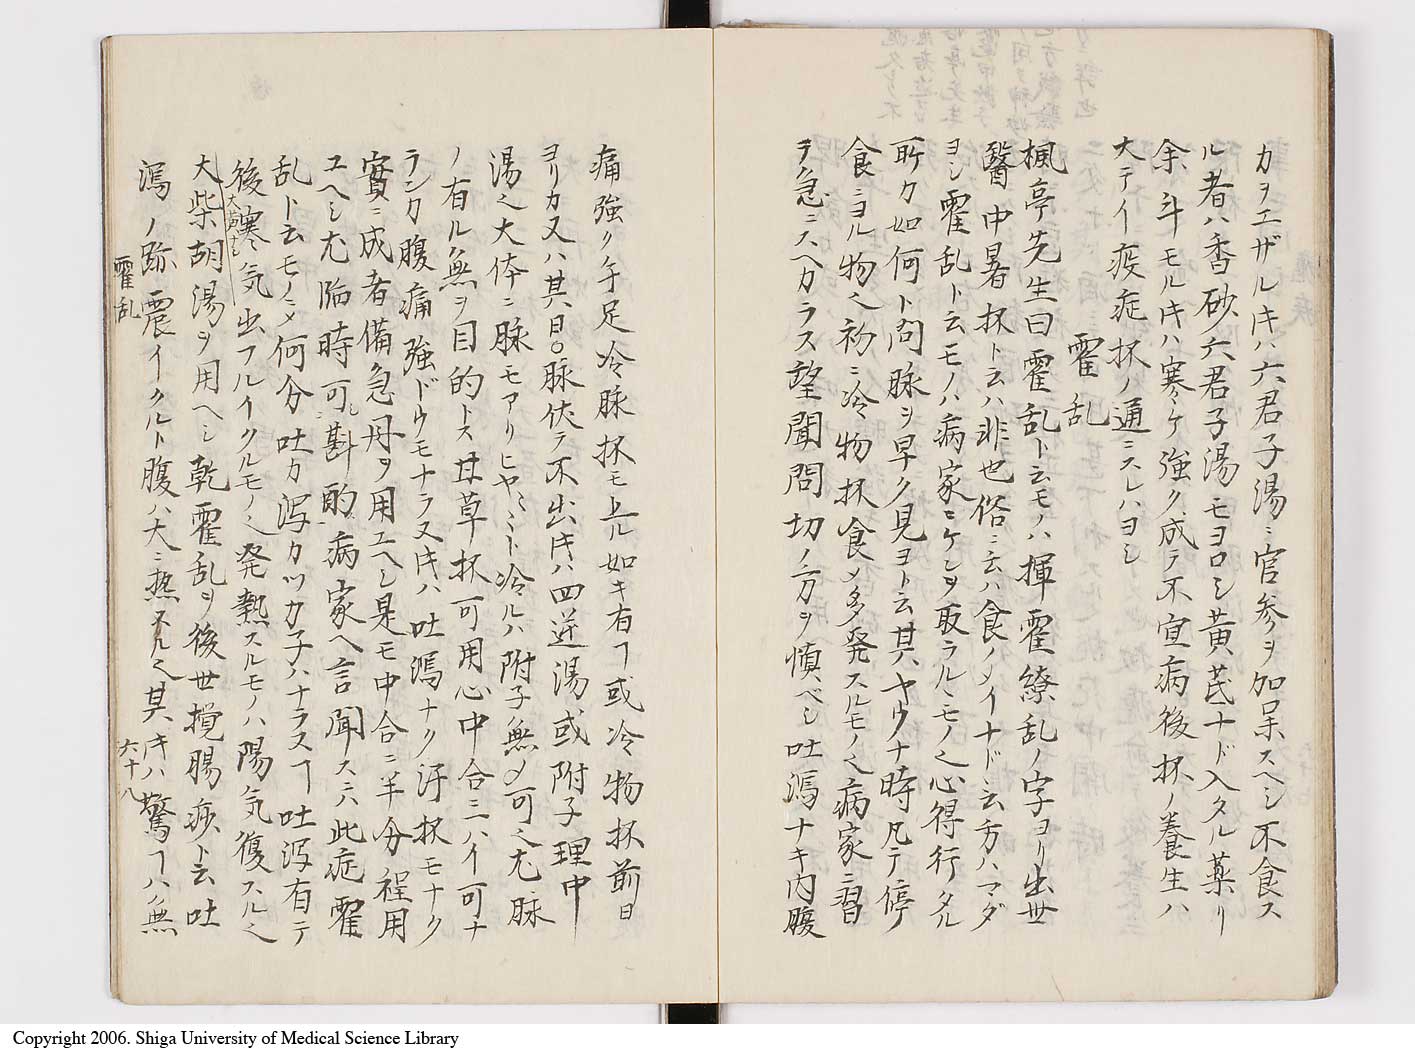 カヲエザルキハ六君子湯ニ官参ヲ加呈スヘシ不食ス
ル者ハ香砂六君子湯モヨロシ黄芪ナド入タル薬リ
余斗モルキハ寒ケ強ク成テ不宜病後抔ノ養生ハ
大テイ疫症抔ノ通ニスレハヨシ
霍乱
楓亭先生曰霍乱ト云モノハ揮霍繚乱ノ字ヨリ出世
醫中暑抔ト云ハ非也俗ニ云ハ食ノメイナドヽ云方ハマダ
ヨシ霍乱ト云モノハ病家ニケシヲ取ラルヽモノ之心得行タル
所カ如何ト问脉ヲ早ク見ヨト云其ヤウナ時凡テ停
食ニヨル物之初ニ冷物抔食メ多発スルモノ之病家ニ習
ヲ急ニスヘカラス望聞問切ノ方ヲ慎ベシ吐瀉ナキ内腹
痛強ク手足冷脉抔モ上ル如キ有ヿ或冷物抔前日
ヨリカ又ハ其日脉伏テ不出キハ四逆湯或附子理中
湯之大体ニ脉モアリヒヤヽヽト冷ルハ附子無メ可之尤脉
ノ有ル無ヲ目的トス甘草抔可用心中合ニハイ可ナ
ランカ腹痛強ドウモナラ又キハ吐瀉ナク汗抔モナク
實ニ成者備急丹ヲ用エヘシ是モ中合ニ半分程用
エヘシ尤臨時可斟酌病家ヘ言聞スニハ此症霍
乱ト云モノニメ何分吐カ泻カツカ子ハナラスヿ吐泻有テ
後寒気出フルイクルモノ之発熱スルモノハ陽気復スル之
大柴胡湯ヲ用ヘシ乾霍乱ヲ後世攪腸痧ト云吐
瀉ノ跡震イクルト腹ハ大ニ熱スル之其キハ驚ヿハ無
霍乱
六十八